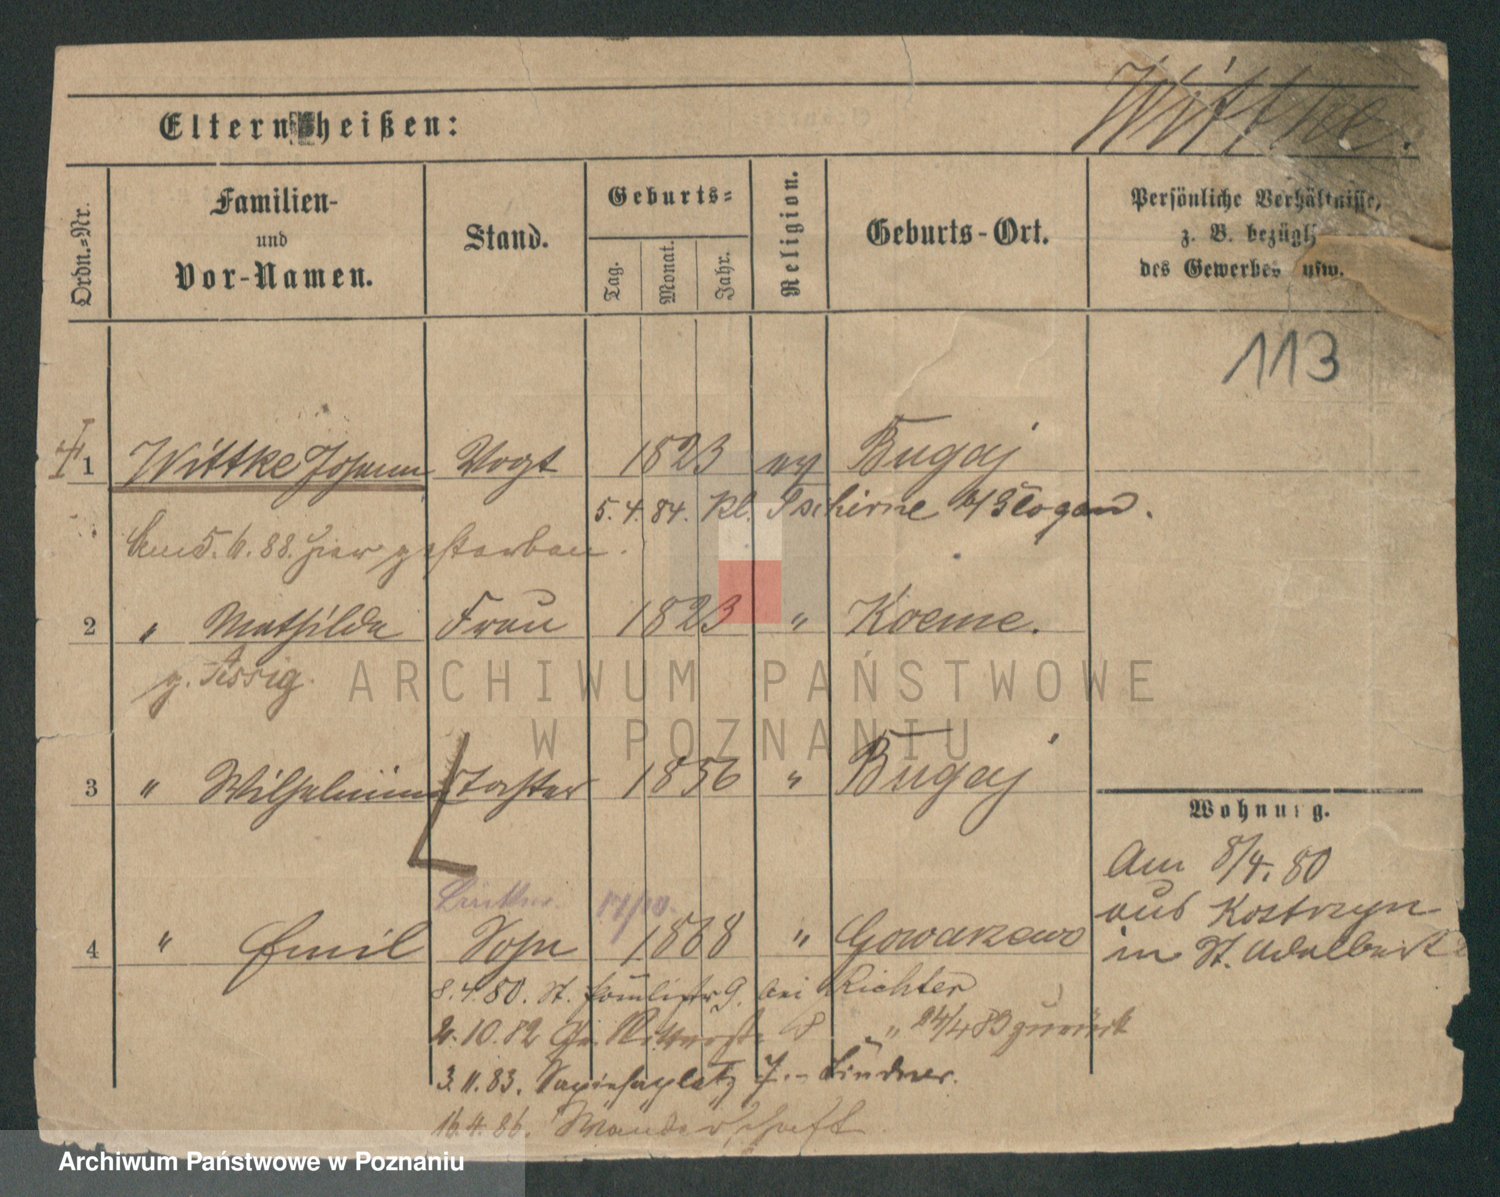 Wittke.
Eltern heißen:
Ordn.=Nr.
Familien-
und
Vor-Namen.
Stand.
Geburts=
Tag.
Monat.
Jahr.
Religion.
Geburts-Ort.
Persönliche Verhältnisse,
z. B. bezügl.
des Gewerbes usw.
113
1 Wittke Johann Vogt 1823 ev Bugaj
5. 4. 84. Kl. Tschirne Glogau.
Am 5. 6. 88. hier gestorben.
2 " Mathilde Frau 1823 " Koeme.
g. Assig.
ARCHIWUM PAŃSTWOWE
W POZNANIU
3 " Wilhelmine Tochter 1856 " Bugaj
Wohnung.
Am 8/4. 80
aus Kostrzyn
in St. Adalbert
17/10.
4 " Emil Sohn 1868 " Gowarzewo
8. 4. 80. St. 9. bei Richter
2. 10. 82 Gr. Ritterstr 8 " 24/4 83 zurück
3. 11. 83. Sapiehaplatz 7 - Lindner.
16. 4. 86. Wanderschaft
Archiwum Państwowe w Poznaniu